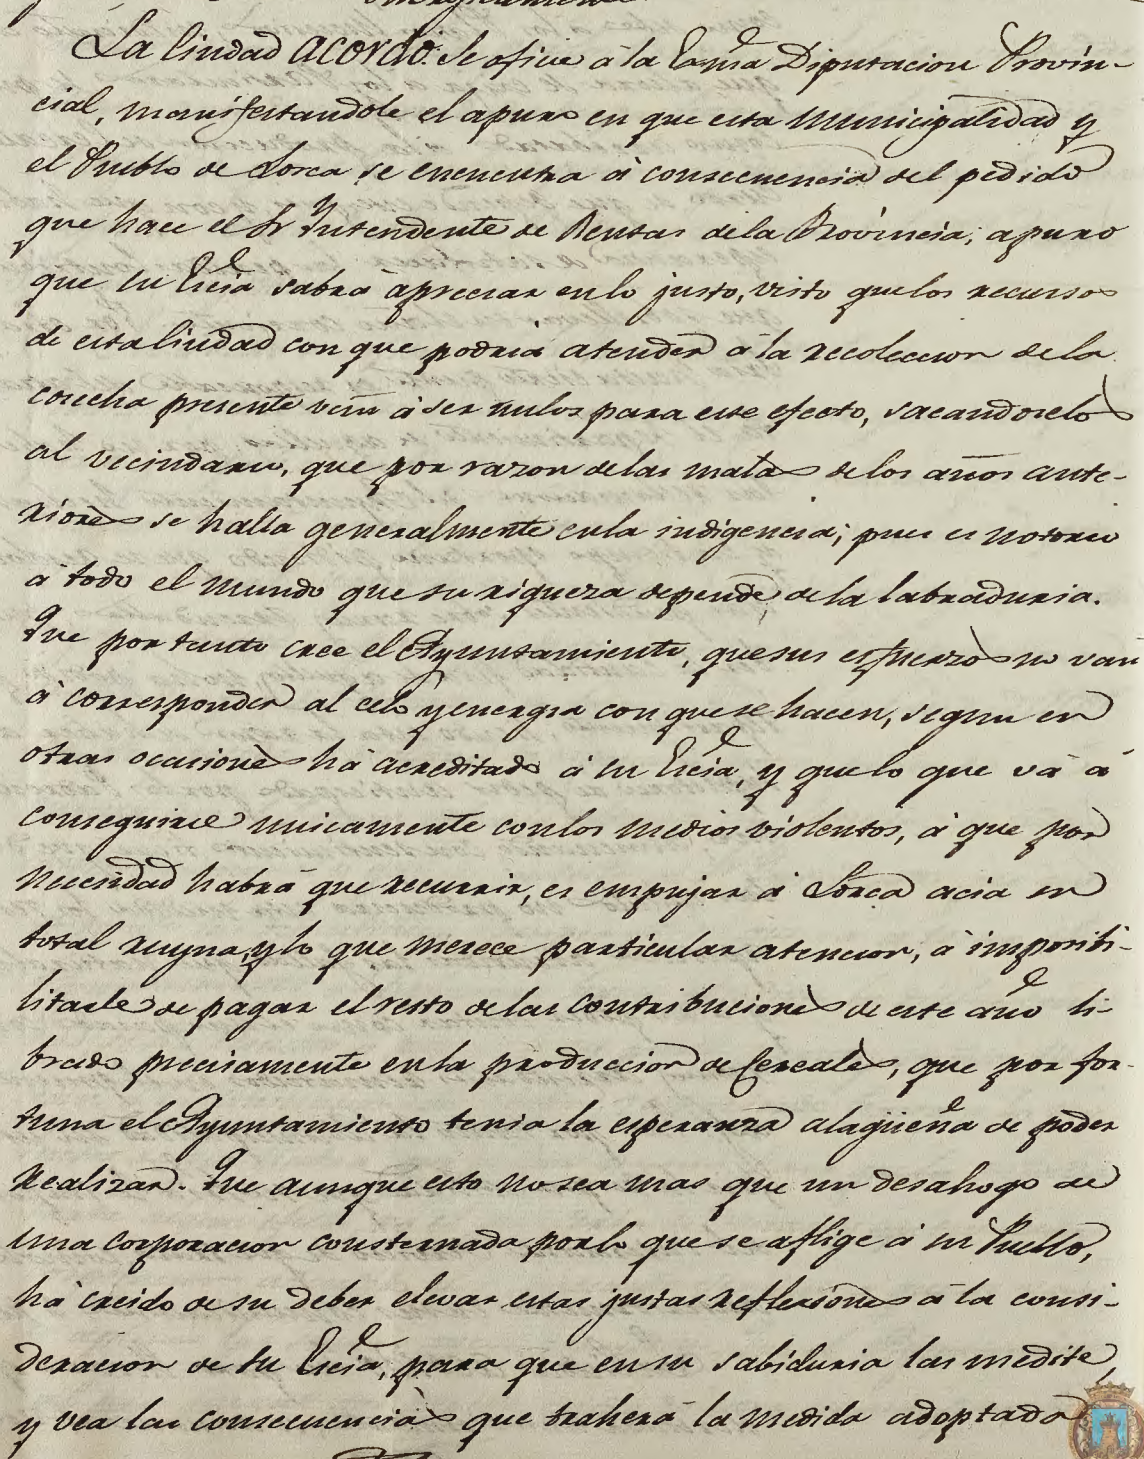 La Ciudad acordó: Se oficie á la Exma Diputacion Provin-
cial, manifestandole el apuro en que esta Municipalidad y
el Pueblo de Lorca se encuentra á consecuencia del pedido
que hace el Sr Yntendente de Rentas dela Provincia; apuro
que su Excia sabrá apreciar enlo justo, visto quelos recursos
de esta Ciudad con que podria atender á la recoleccion dela
cosecha presente ven á ser nulos para este efecto, sacandoselos
al vecindario, que por razon delas malas delos años ante-
riores se halla generalmente enla indigencia; pues es notorio
á todo el mundo que su riqueza depende dela labraduria.
Que por tanto cree el Ayuntamiento, que sus esfuerzos no van
á corresponder al celo y energia con que se hacen, segun en
otras ocasiones há acreditado á su Excia, y quelo que vá á
conseguirse unicamente conlos medios violentos, á que por
necesidad habrá que recurrir, es empujar á Lorca acia su
total ruyna, y lo que merece particular atencion, á imposibi-
litarle de pagar el resto delas contribuciones de este año li-
brado precisamente enla produccion de Cereales, que por for-
tuna el Ayuntamiento tenia la esperanza alagüeña de poder
realizar. Que aunque esto no sea mas que un desahogo de
una corporacion consternada porlo que se aflige á su Pueblo,
há creido de su deber elevar estas justas reflexiones á la consi-
deracion de su Excia, para que en su sabiduria las medite,
y vea las consecuencias que traherá la medida adoptada